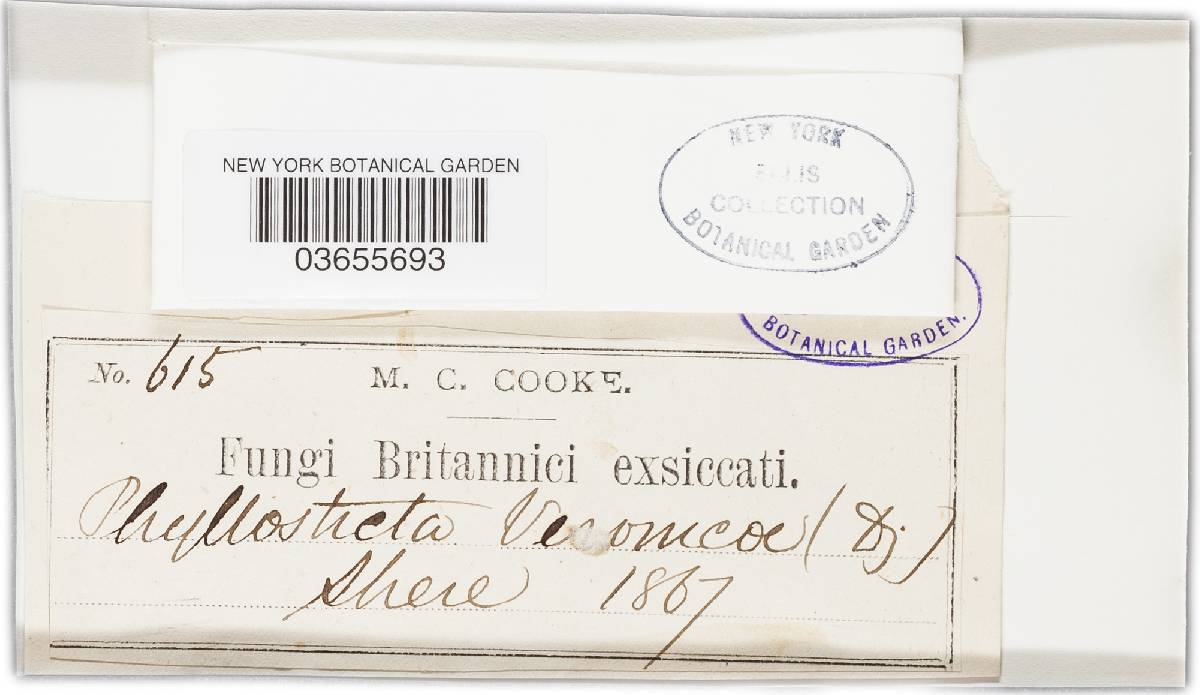 NEW YORK BOTANICAL GARDEN
03655693
NEW YORK
ELLIS
COLLECTION
BOTANICAL GARDEN
BOTANICAL GARDEN.
No. 615
M. C. COOKE.
Fungi Britannici exsiccati.
Phyllosticta Veronicæ (Dj)
Shere 1867